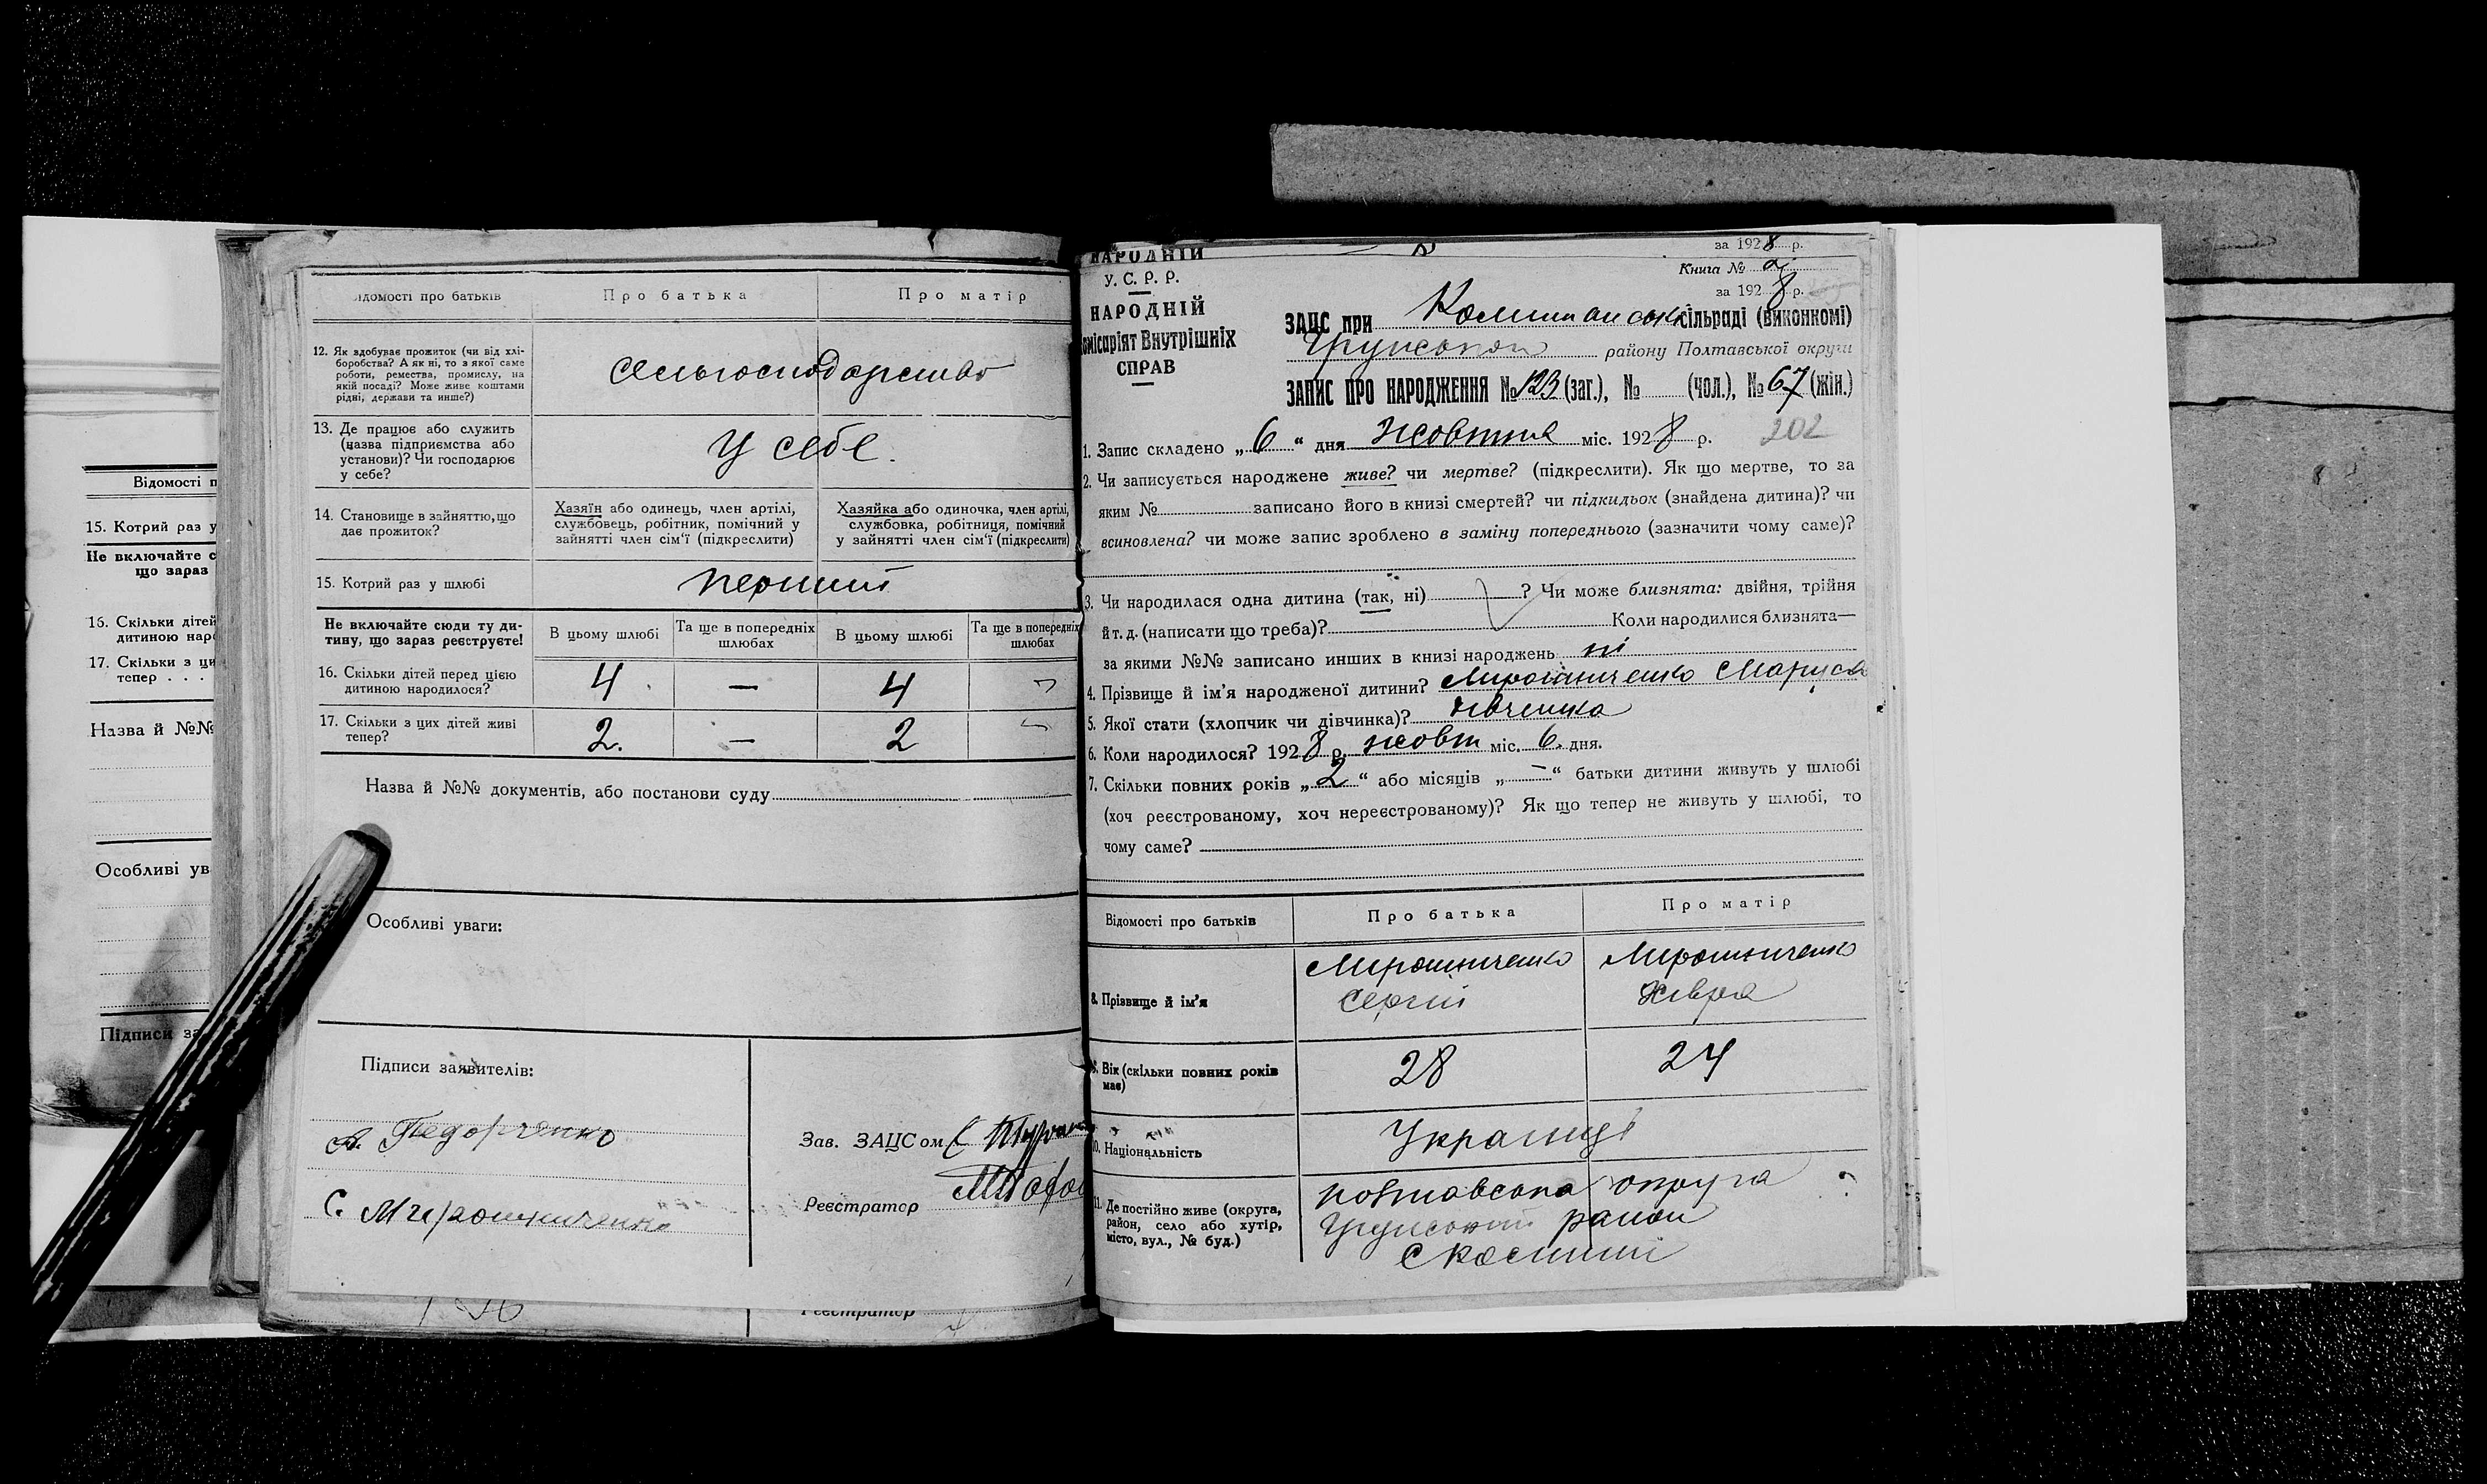 Відомості п
15. Котрий раз у
Не включайте с
що зараз
16. Скільки дітей
дитиною наро
17. Скільки з ци
тепер . . .
Назва й №№
Особливі ув
Підписи за
ідомості про батьків
Про батька
Про матір
12. Як здобуває прожиток (чи від хлі-
боробства? А як ні, то з якої саме
роботи, ремества, промислу, на
якій посаді? Може живе коштами
рідні, держави та инше?)
сельгосподарство
13. Де працює або служить
(назва підприємства або
установи)? Чи господарює
у себе?
У себе.
14. Становище в зайняттю, що
дає прожиток?
Хазяїн або одинець, член артілі,
службовець, робітник, помічний у
зайнятті член сім'ї (підкреслити)
Хазяйка або одиночка, член артілі,
службовка, робітниця, помічний
у зайнятті член сім'ї (підкреслити)
15. Котрий раз у шлюбі
перший
Не включайте сюди ту ди-
тину, що зараз реєструєте!
В цьому шлюбі
Та ще в попередніх
шлюбах
В цьому шлюбі
Та ще в попередніх
шлюбах
16. Скільки дітей перед цією
дитиною народилося?
4 — 4
17. Скільки з цих дітей живі
тепер?
2. — 2
Назва й №№ документів, або постанови суду
Особливі уваги:
Підписи заявителів:
Федорченко
С. Мирошниченко
Зав. ЗАЦСом
Реєстратор
Реєстратор
НАРОДНІЙ
У.С.Р.Р.
НАРОДНІЙ
омісаріят Внутрішніх
СПРАВ
за 1928 р.
Книга № 2
за 1928 р.
ЗАЦС при сільраді (виконкомі)
району Полтавської округи
ЗАПИС ПРО НАРОДЖЕННЯ № 123 (заг.), № (чол.), № 67 (жін.)
202
1. Запис складено „6“ дня жовтня міс. 1928 р.
2. Чи записується народжене живе? чи мертве? (підкреслити). Як що мертве, то за
яким № записано його в книзі смертей? чи підкидьок (знайдена дитина)? чи
всиновлена? чи може запис зроблено в заміну попереднього (зазначити чому саме)?
3. Чи народилася одна дитина (так, ні) ? Чи може близнята: двійня, трійня
й т. д. (написати що треба)? Коли народилися близнята—
за якими №№ записано инших в книзі народжень ні
4. Прізвище й ім'я народженої дитини? Мирошниченко Маруся
5. Якої стати (хлопчик чи дівчинка)? дівчинка
6. Коли народилося? 1928 р. жовт міс. 6. дня.
7. Скільки повних років „2“ або місяців „—“ батьки дитини живуть у шлюбі
(хоч реєстрованому, хоч нереєстрованому)? Як що тепер не живуть у шлюбі, то
чому саме?
Відомості про батьків
Про батька
Про матір
8. Прізвище й ім'я
Мирошниченко
Сергій
Мирошниченко
Хівря
9. Вік (скільки повних років
має)
28
24
10. Національність
Українці
11. Де постійно живе (округа,
район, село або хутір,
місто, вул., № буд.)
полтавська округа
район